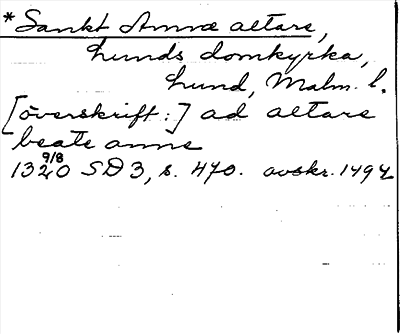 * Sankt Annæ altare,
Lunds domkyrka,
Lund, Malm. l.
[överskrift:] ad altare
beate anne
1320 9/8 SD 3, s. 470. avskr. 1494